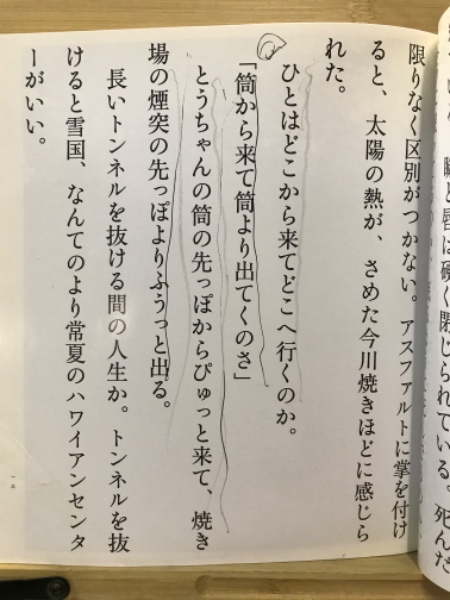 腕と唇は硬く閉じられている。死んだ
限りなく区別がつかない。アスファルトに掌を付け
ると、太陽の熱が、さめた今川焼きほどに感じら
れた。
ひとはどこから来てどこへ行くのか。
「筒から来て筒より出てくのさ」
とうちゃんの筒の先っぽからぴゅっと来て、焼き
場の煙突の先っぽよりふうっと出る。
長いトンネルを抜ける間の人生か。トンネルを抜
けると雪国、なんてのより常夏のハワイアンセンタ
ーがいい。